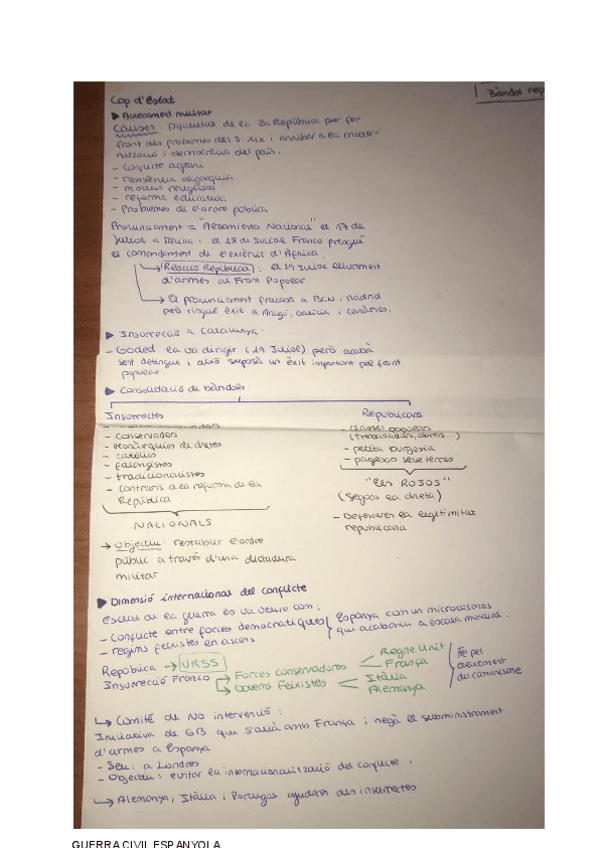 Bàndol rep
Cop d'Estat
▶ Aixecament militar
Causes: Dificultat de la 2a República per fer
front als problemes del s. XIX i arribar a la moder-
nització i democràcia del país.
- Conflicte agrari
- resistència oligarquia
- motius religiosos
- reforma educativa
- Problemes de l'ordre públic
Pronunciament = "Alzamiento Nacional" el 17 de
Juliol a Melilla i el 18 de Juliol Franco prengué
el comandament de l'exèrcit d'Àfrica.
→ Reacció República: el 19 Juliol lliurament
d'armes al Front Popular
→ El pronunciament fracassà a BCN i Madrid
però tingué èxit a Aragó, Galícia i Canàries.
▶ Insurrecció a Catalunya:
- Goded la va dirigir (19 Juliol) però acabà
sent detingut i això suposà un èxit important pel front
popular.
▶ Consolidació de bàndols:
Insurrectes
- conservadors
- Monàrquics de dretes
- catòlics
- falangistes
- tradicionalistes
- contraris a la reforma de la
República
NACIONALS
→ Objectiu: restablir l'ordre
públic a través d'una dictadura
militar
Republicans
- classes
(treballadors, obrers...)
- petita burgesia
- pagesos sense terres
"Els ROJOS"
(Segons la dreta)
- Defensaven la legitimitat
republicana
▶ Dimensió internacional del conflicte
Esclat de la guerra es va veure com:
- conflicte entre forces democràtiques
- règims feixistes en ascens
Espanya com un microcosmos
que acabaria a escala mundial.
República → URSS
Insurrecció Franco → Forces conservadores
Regne Unit
França
→ Governs Feixistes
Itàlia
Alemanya
Fe pel
creixement
del comunisme
↳ Comitè de No intervenció:
Iniciativa de GB que s'alià amb França i negà el subministrament
d'armes a Espanya
- Seu: a Londres
- Objectiu: evitar la internacionalització del conflicte.
↳ Alemanya, Itàlia i Portugal ajudaren als insurrectes
GUERRA CIVIL ESPANYOLA